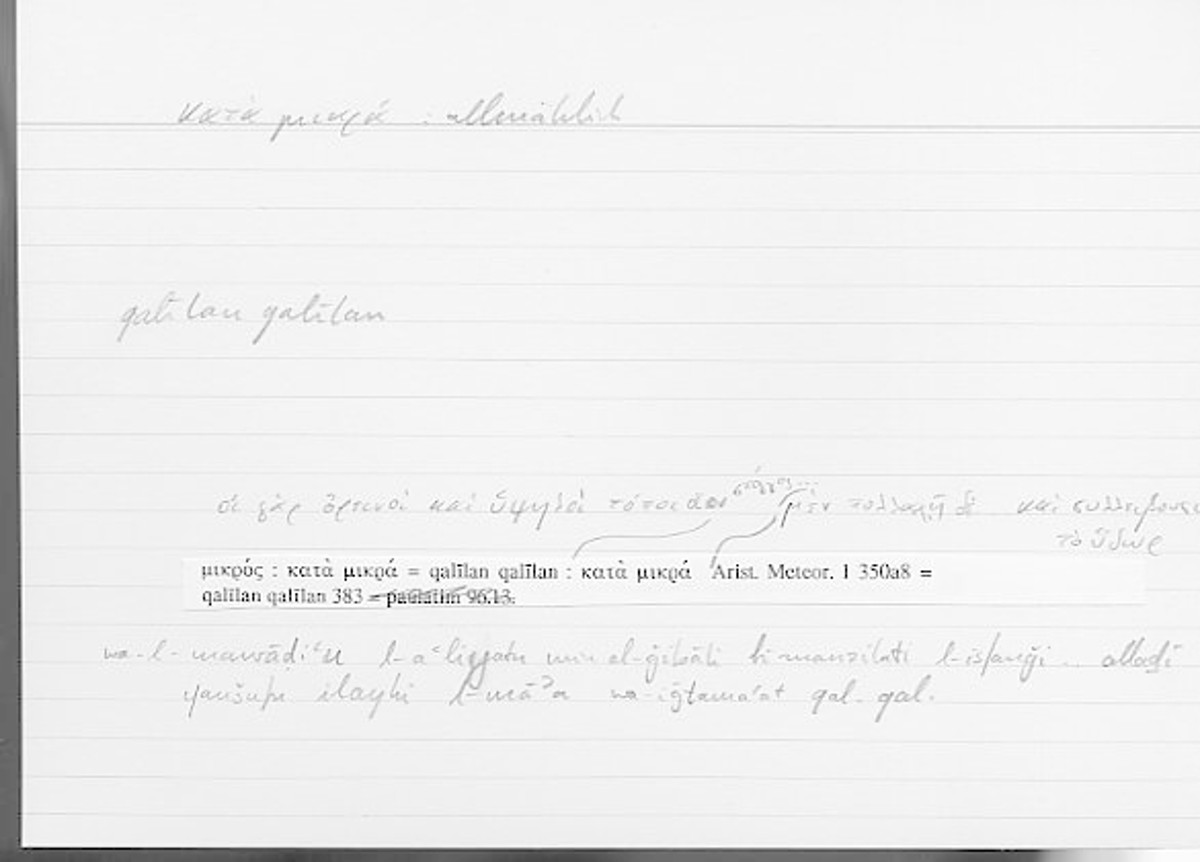 κατὰ μικρά : allmählich
qalīlan qalīlan
σπόγγος...
οἱ γὰρ ὀρεινοὶ καὶ ὑψηλοὶ τόποι μὲν πολλαχῇ δὲ καὶ συλλείβουσι
τὸ ὕδωρ
μικρός : κατὰ μικρά = qalīlan qalīlan : κατὰ μικρά Arist. Meteor. I 350a8 =
qalīlan qalīlan 383 = paulatim 96.13.
wa-l-mawāḍiʿu l-aʿliyyatu min al-ǧibāli bi-manzilati l-isfanǧi .. allaḏī
yanšufu ilayhi l-māʾa wa-iǧtamaʿat qal. qal.